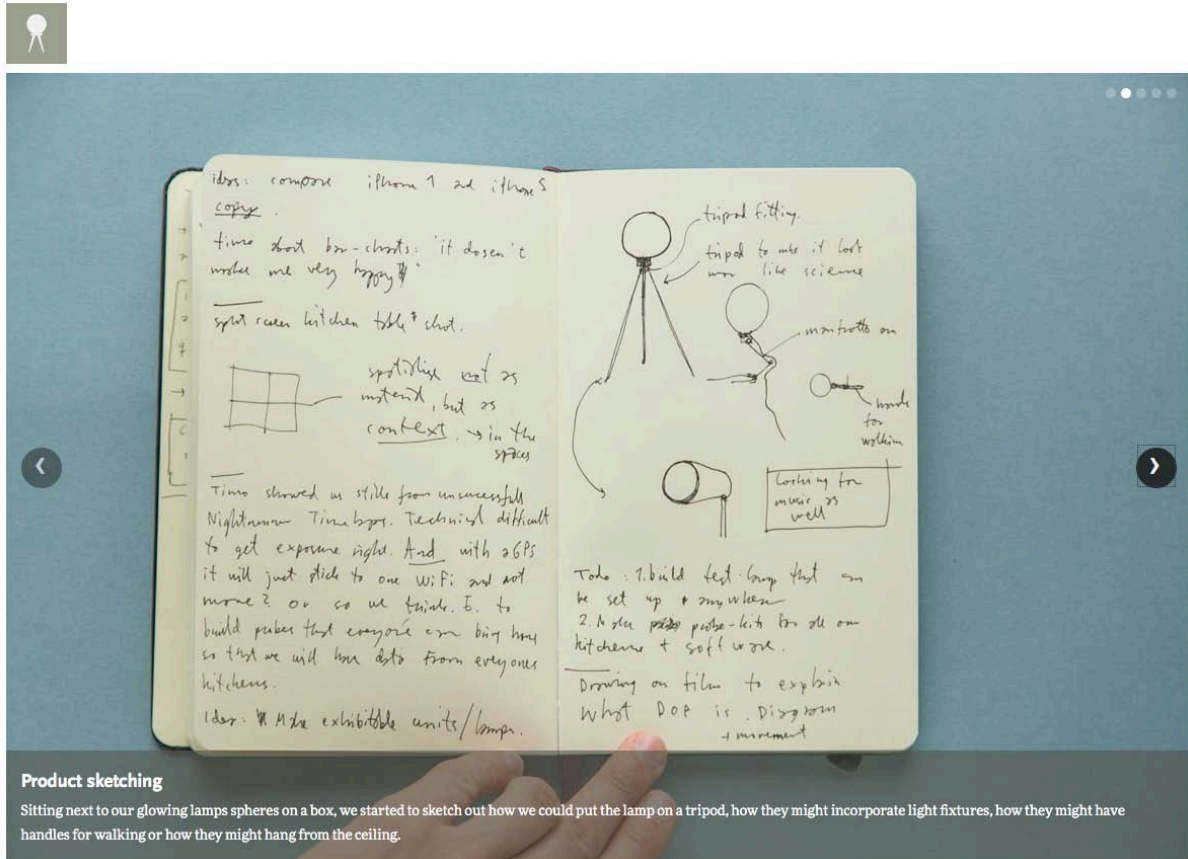 idea: compare iPhone 1 and iPhone 5
copy.
timo about bar-charts: 'it dosen't
make me very happy'
split screen kitchen table shot.
spotilise not as
material, but as
context. → in the
spaces
Timo showed us stills from unsucessfull
Timelaps. Technical difficult
to get exposure right. And with aGPS
it will just stick to one WiFi and not
move? or so we think. E. to
build probes that everyone can bring home
so that we will have data from everyones
kitchens.
Idea: Make exhibitable units/lamps.
tripod fitting.
tripod to make it look
more like science
manfrotto arm
handle
for
walking
Looking for
music as
well
Todo: 1. build test-lamp that can
be set up anywhere
2. Make probe-kits for all our
kitchens + software.
Drawing on film to explain
what DOP is. Diagram
+ movement
Product sketching
Sitting next to our glowing lamps spheres on a box, we started to sketch out how we could put the lamp on a tripod, how they might incorporate light fixtures, how they might have
handles for walking or how they might hang from the ceiling.